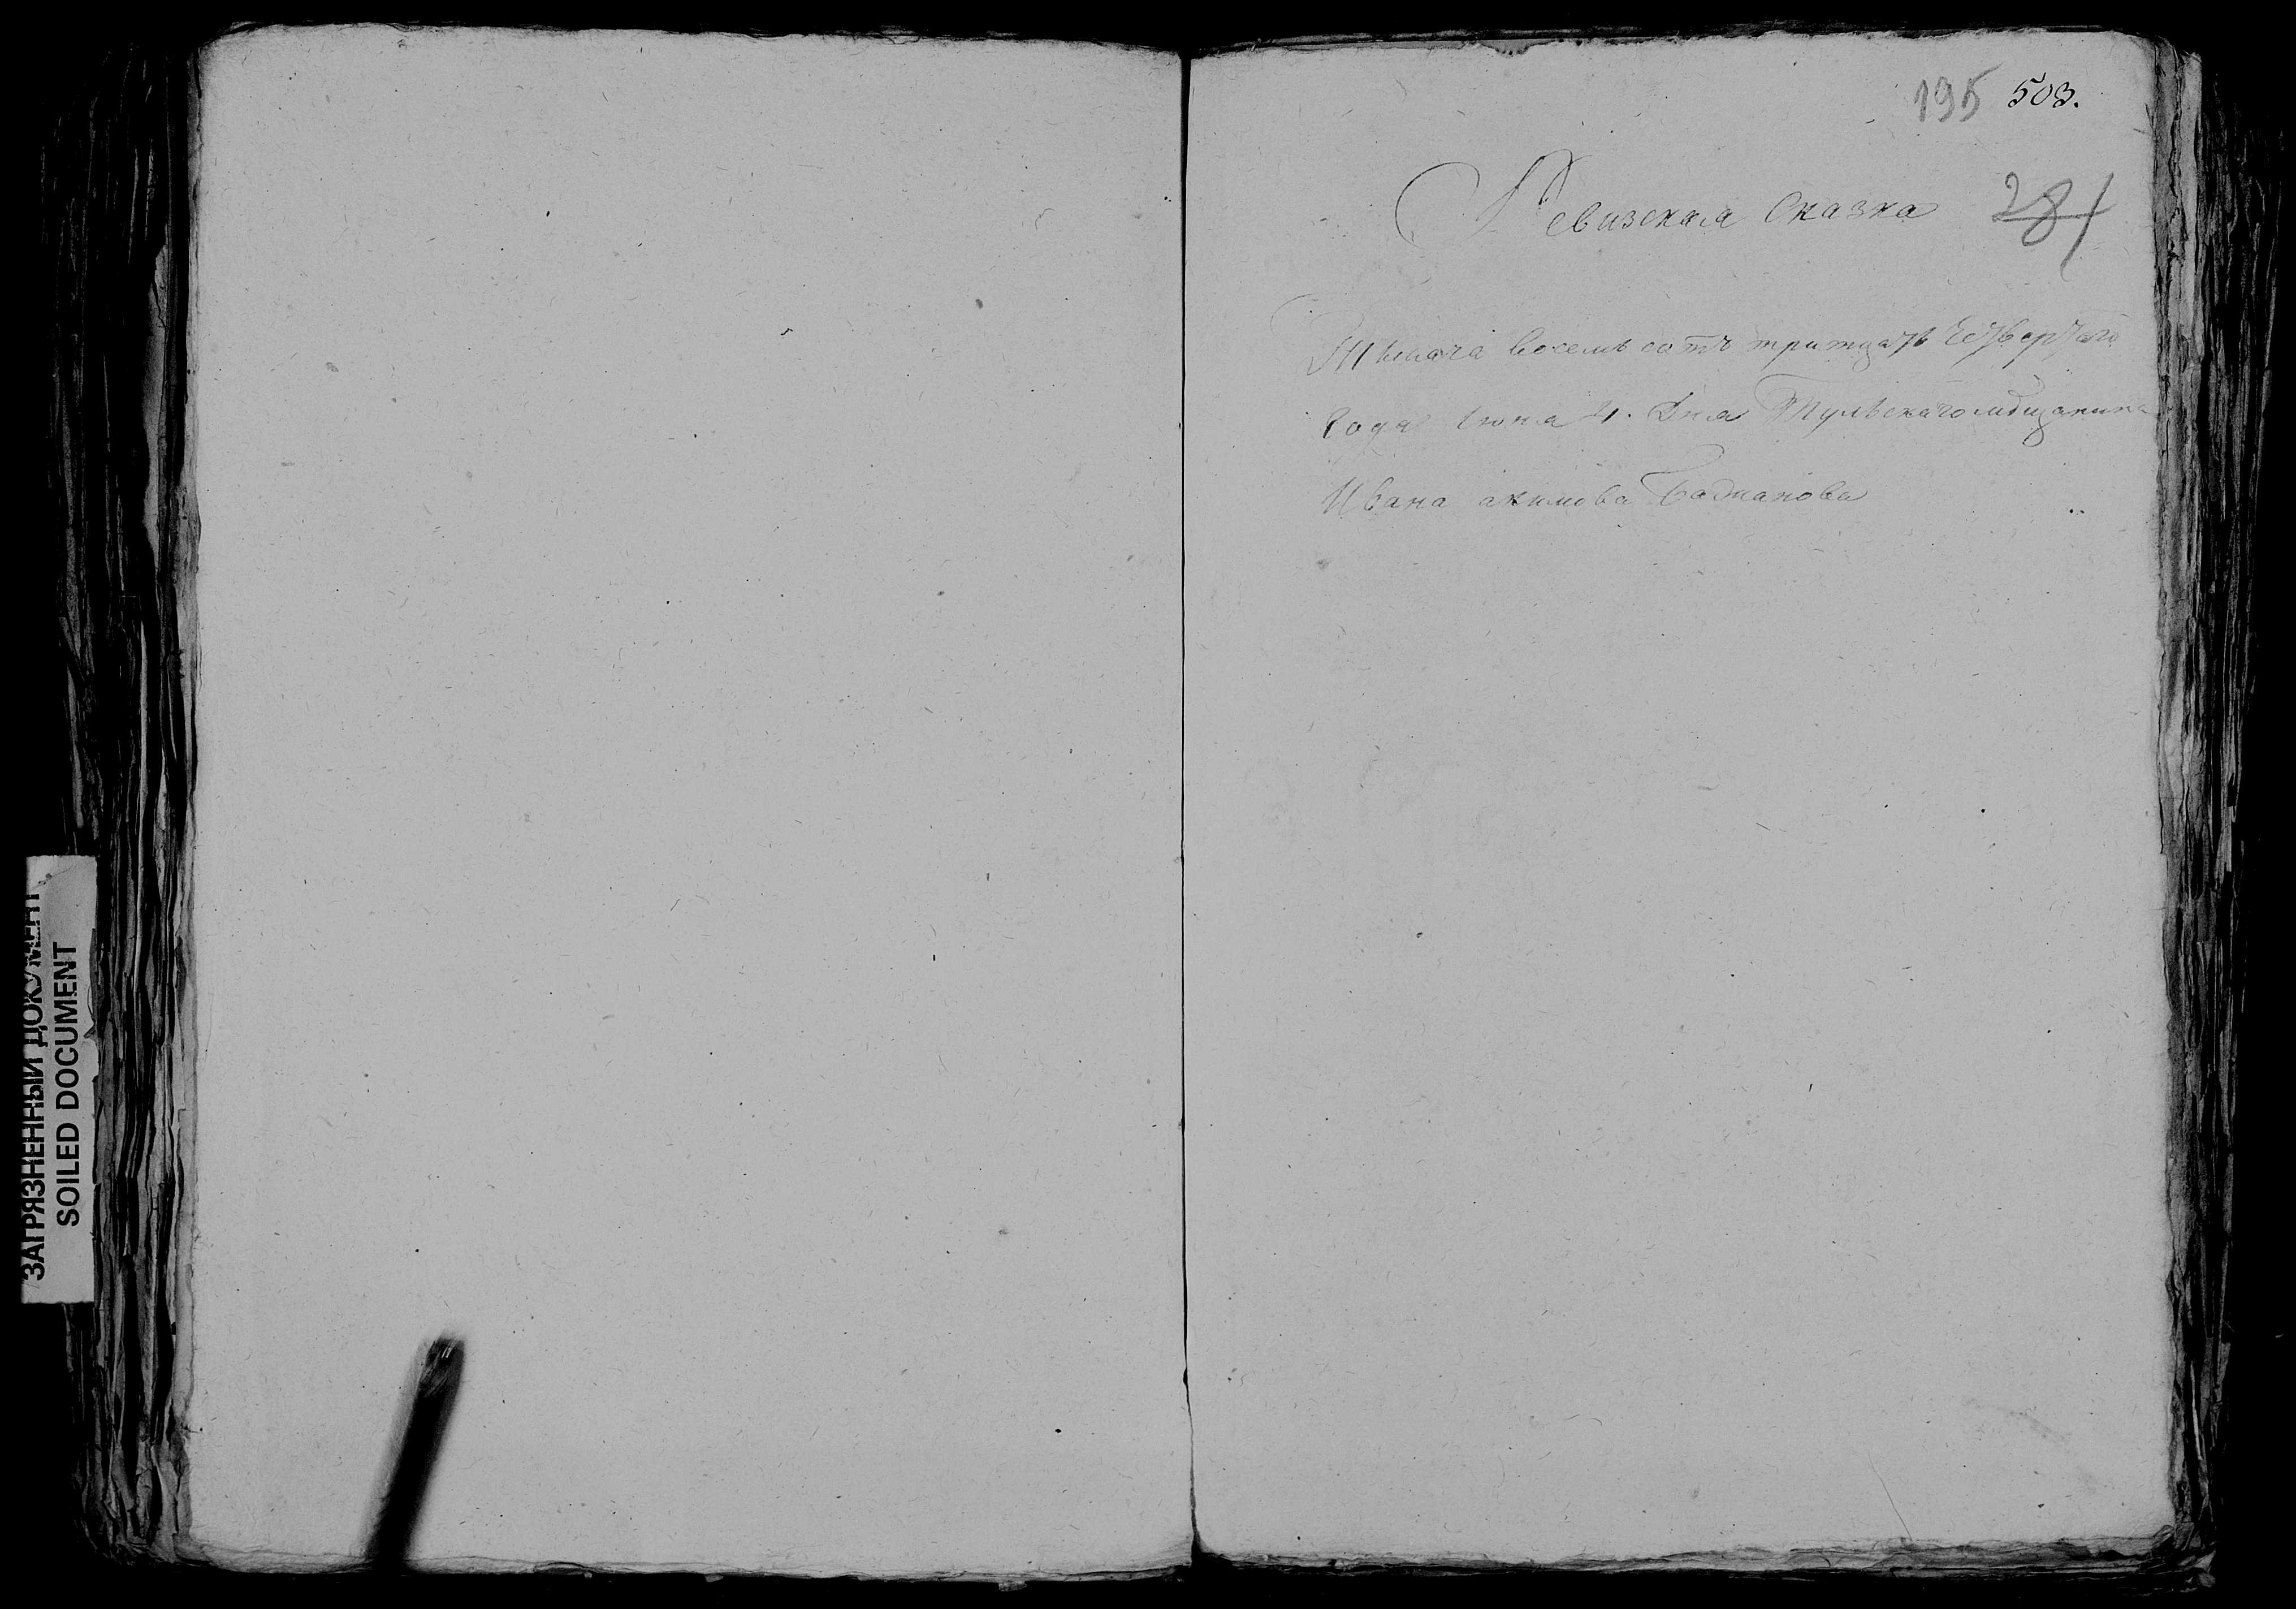 195 503.
Ревизская Сказка 281
Тысяча восемь сотъ тритцать Четвертаго
Года Июня 4. Дня Тульскаго мѣщанина
Ивана акимова
ЗАГРЯЗНЕННЫЙ ДОКУМЕНТ
SOILED DOCUMENT